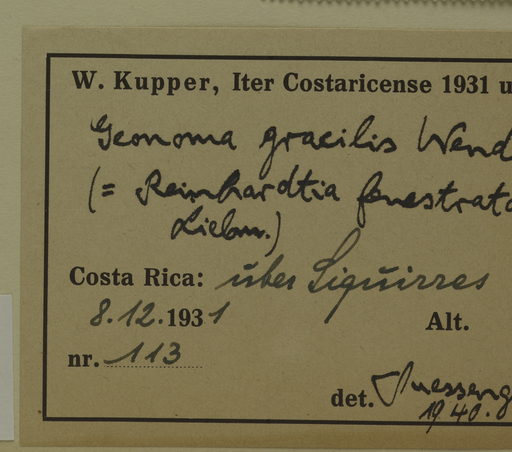 W. Kupper, Iter Costaricense 1931 u
Geonoma gracilis Wend
(= Reinhardtia fenestrata
Liebm.)
Costa Rica: über Siquirres
8.12.1931 Alt.
nr. 113
det. Suesseng
1940.